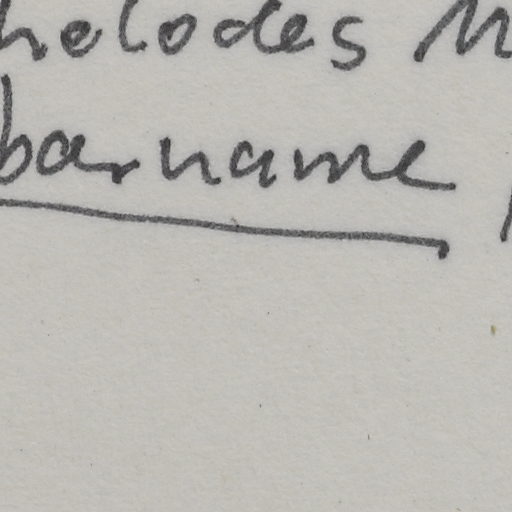 helodes M
barname